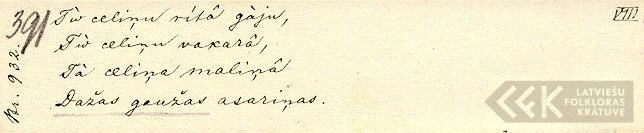 391
VIII
Nr. 932.
Tò celiņu rítâ gàju,
Tò celiņu vakarâ,
Tà celiņa maliņâ
Dažas gaužas asariņas.
LATVIEŠU
FOLKLORAS
KRĀTUVE